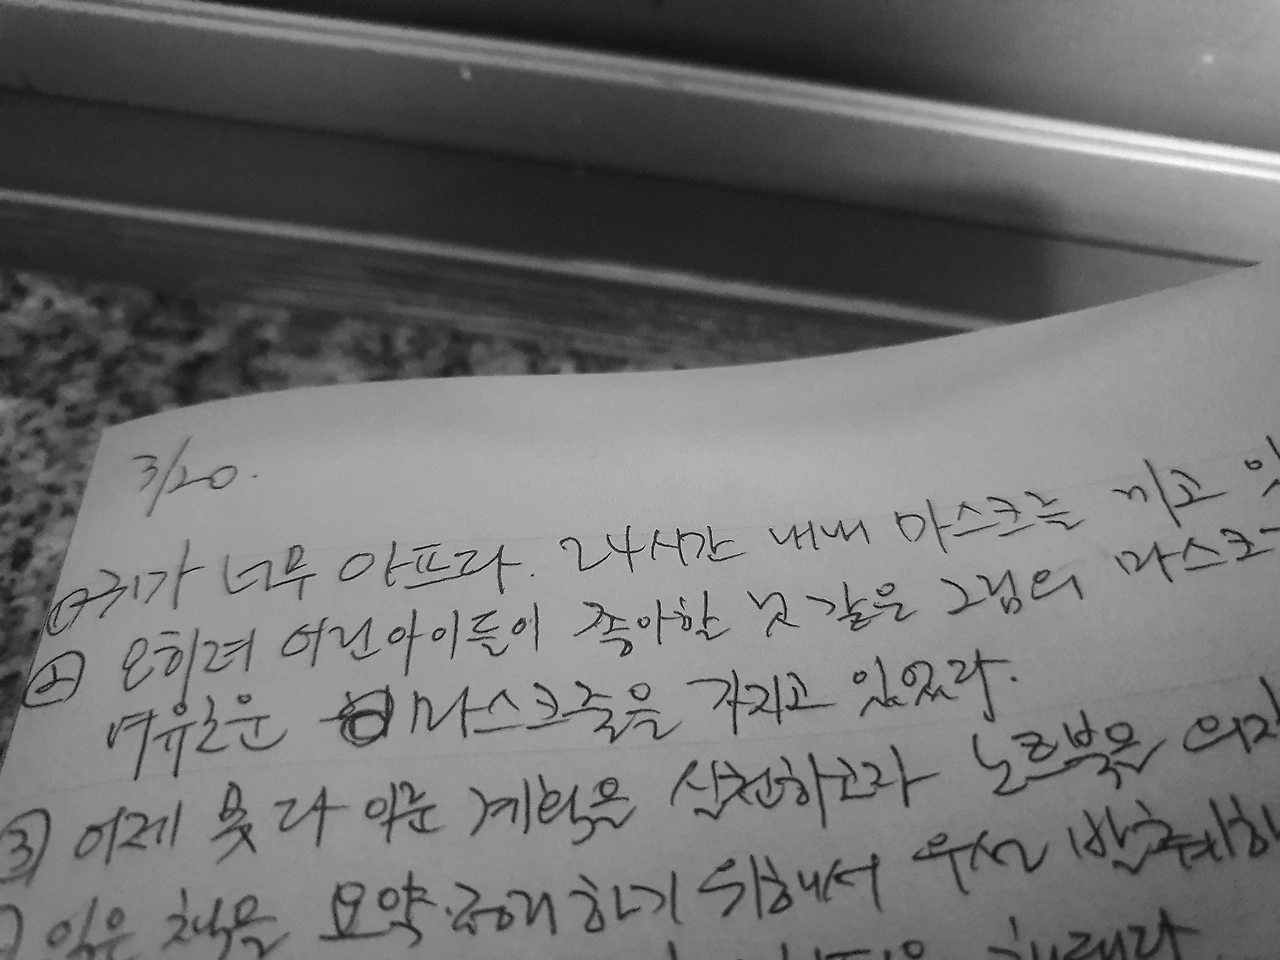 3/20.
① 귀가 너무 아프다. 24시간 내내 마스크를 끼고 있
② 오히려 어린아이들이 좋아할 것 같은 그림의 마스크
여유로운 마스크줄을 가지고 있었다.
③ 어제 못 다 이룬 계획을 실천하고자 노트북을 의자
읽은 책을 요약·정리하기 위해서 우선 발췌